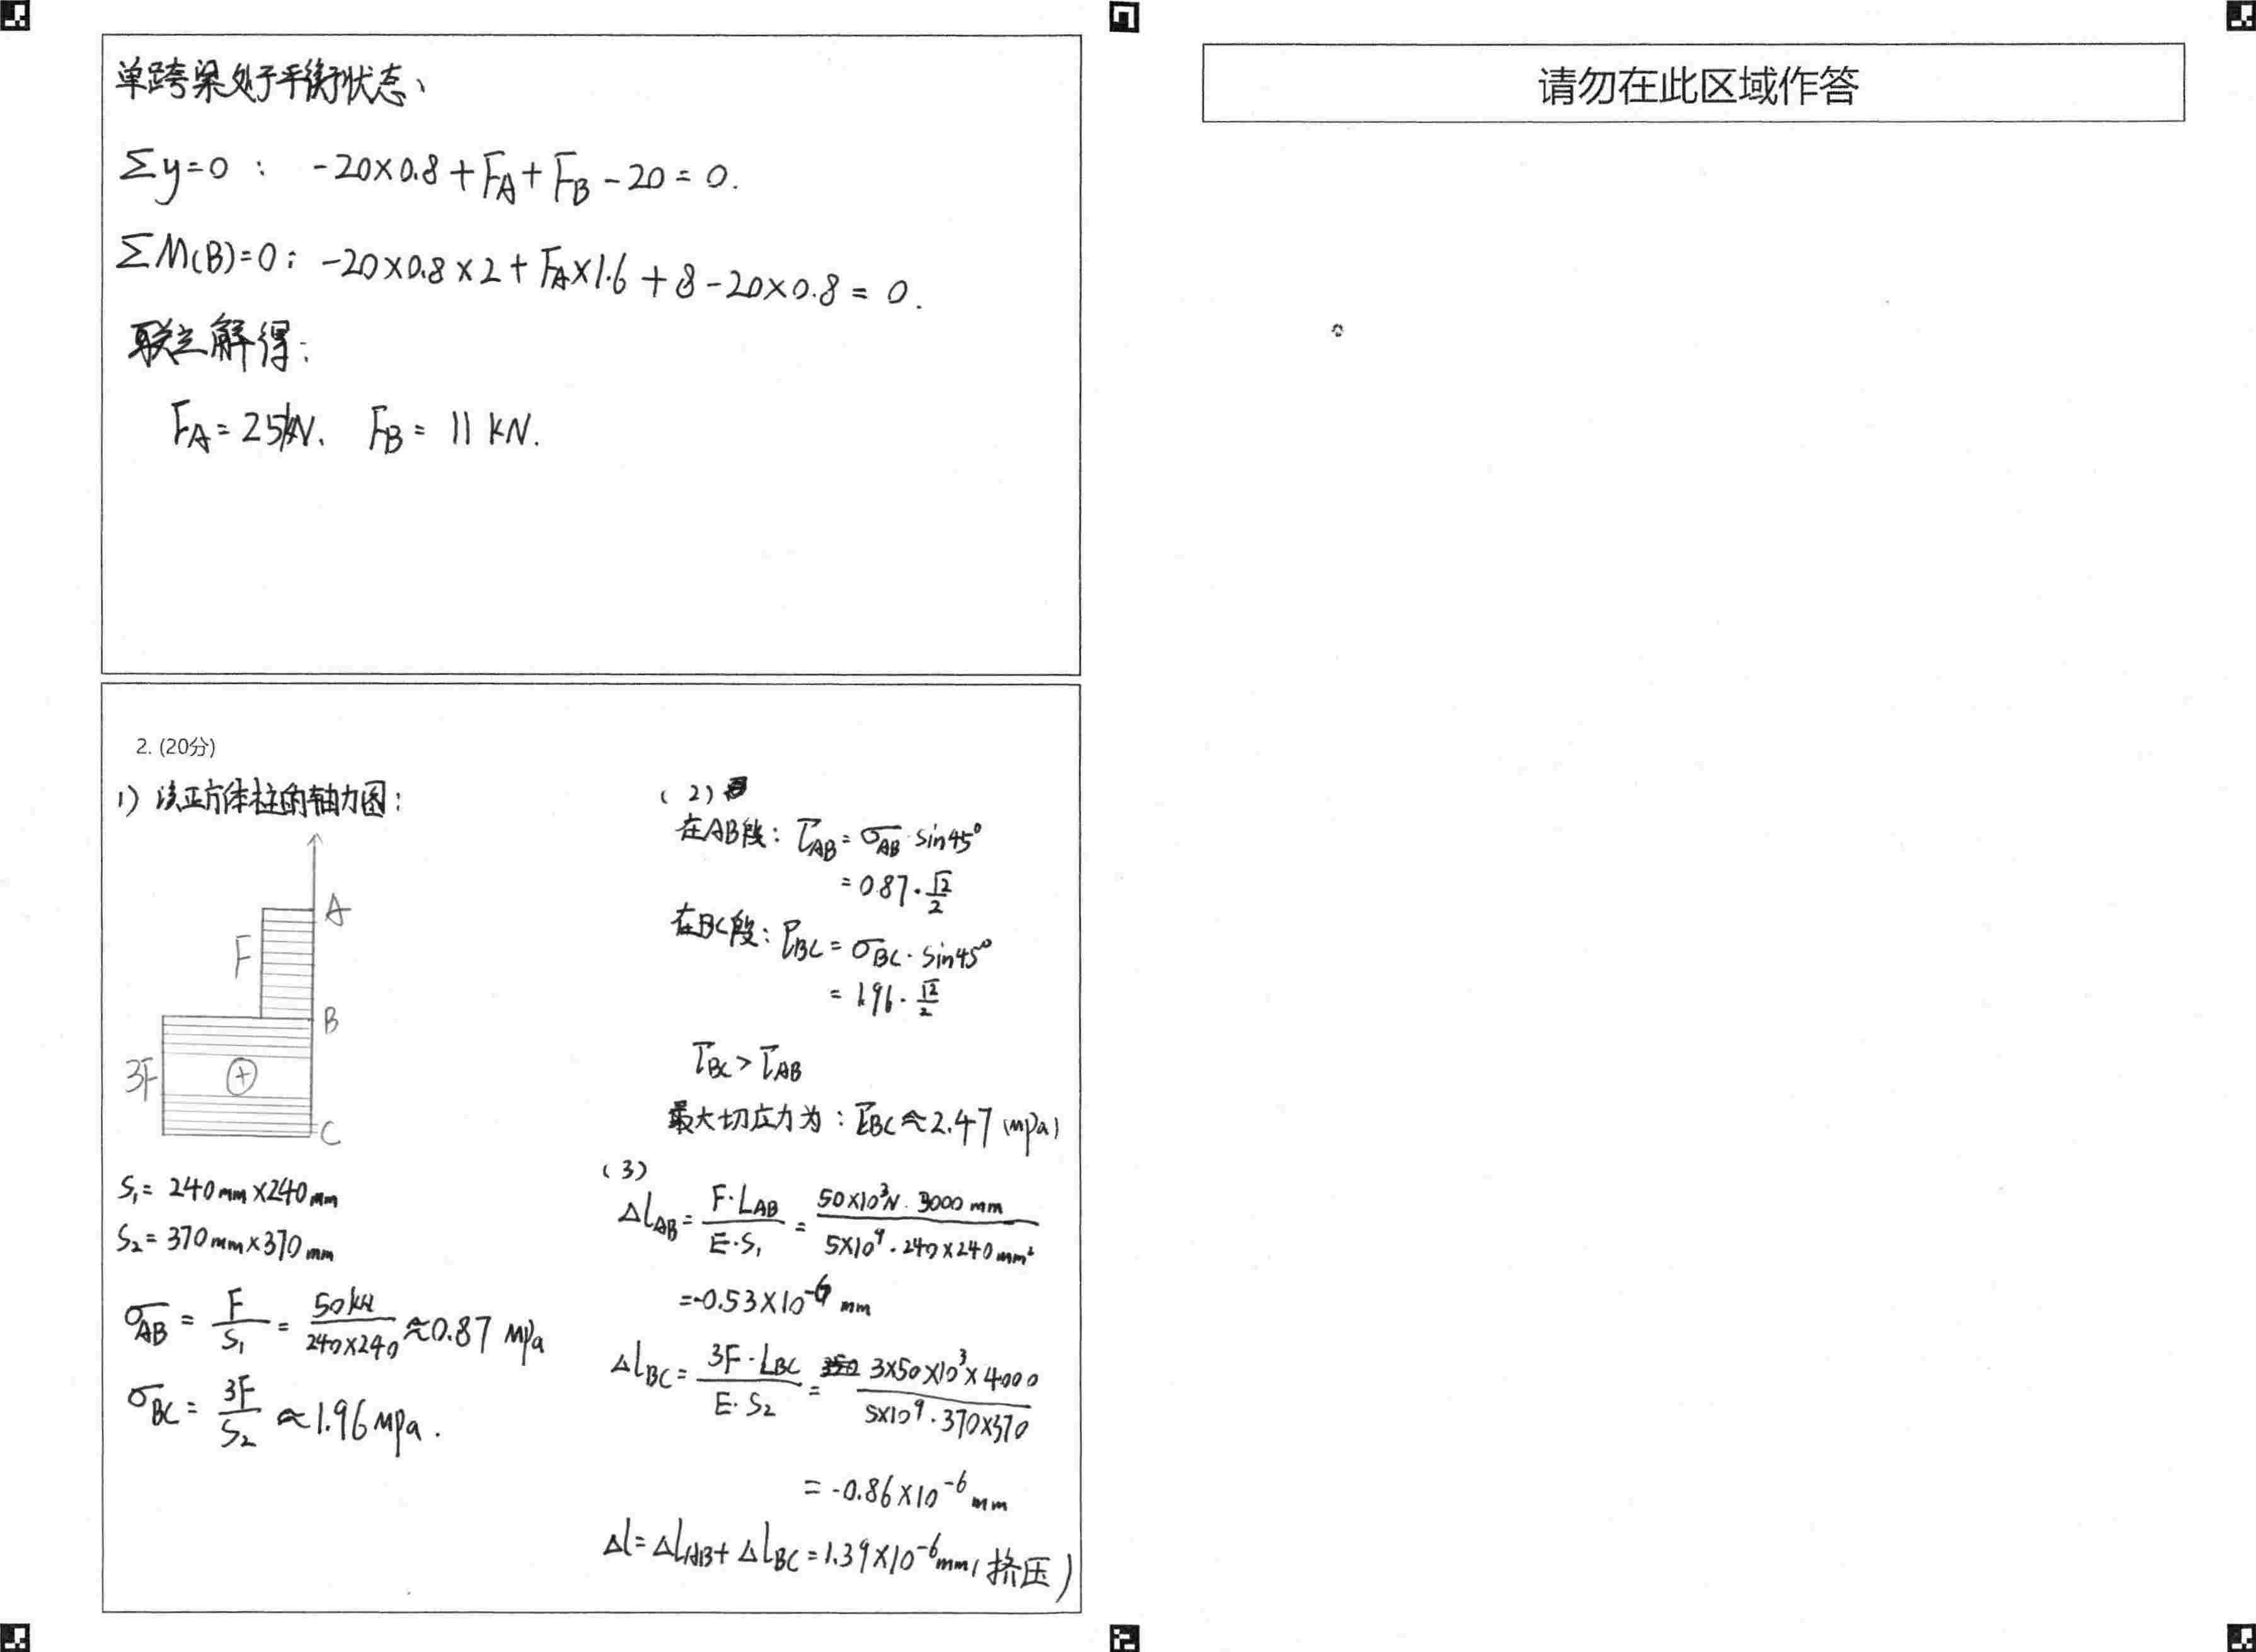 单跨梁处于平衡状态、
Σy=0 : -20×0.8+FA+FB-20=0.
ΣM(B)=0: -20×0.8×2+FA×1.6+8-20×0.8=0.
联立解得:
FA=25kN、 FB= 11 kN.
2. (20分)
1) 该正方体柱的轴力图:
A
F
B
3F
+
C
S₁= 240mm×240mm
S₂= 370mm×370mm
σAB = F/S₁ = 50kN/240×240 ≈0.87 Mpa
σBC = 3F/S₂ ≈1.96 Mpa.
(2)
在AB段: τAB= σAB·sin45°
=0.87·√2/2
在BC段: τBC= σBC·sin45°
= 1.96·√2/2
τBC>τAB
最大切应力为: τBC≈2.47 (mpa)
(3)
ΔlAB= F·LAB/E·S₁ = 50×10³N·3000mm/5×10⁹·240×240mm²
=-0.53×10⁻⁶ mm
ΔlBC= 3F·LBC/E·S₂ = 3×50×10³×4000/5×10⁹·370×370
=-0.86×10⁻⁶mm
Δl=ΔlAB+ΔlBC=1.39×10⁻⁶mm(挤压)
请勿在此区域作答